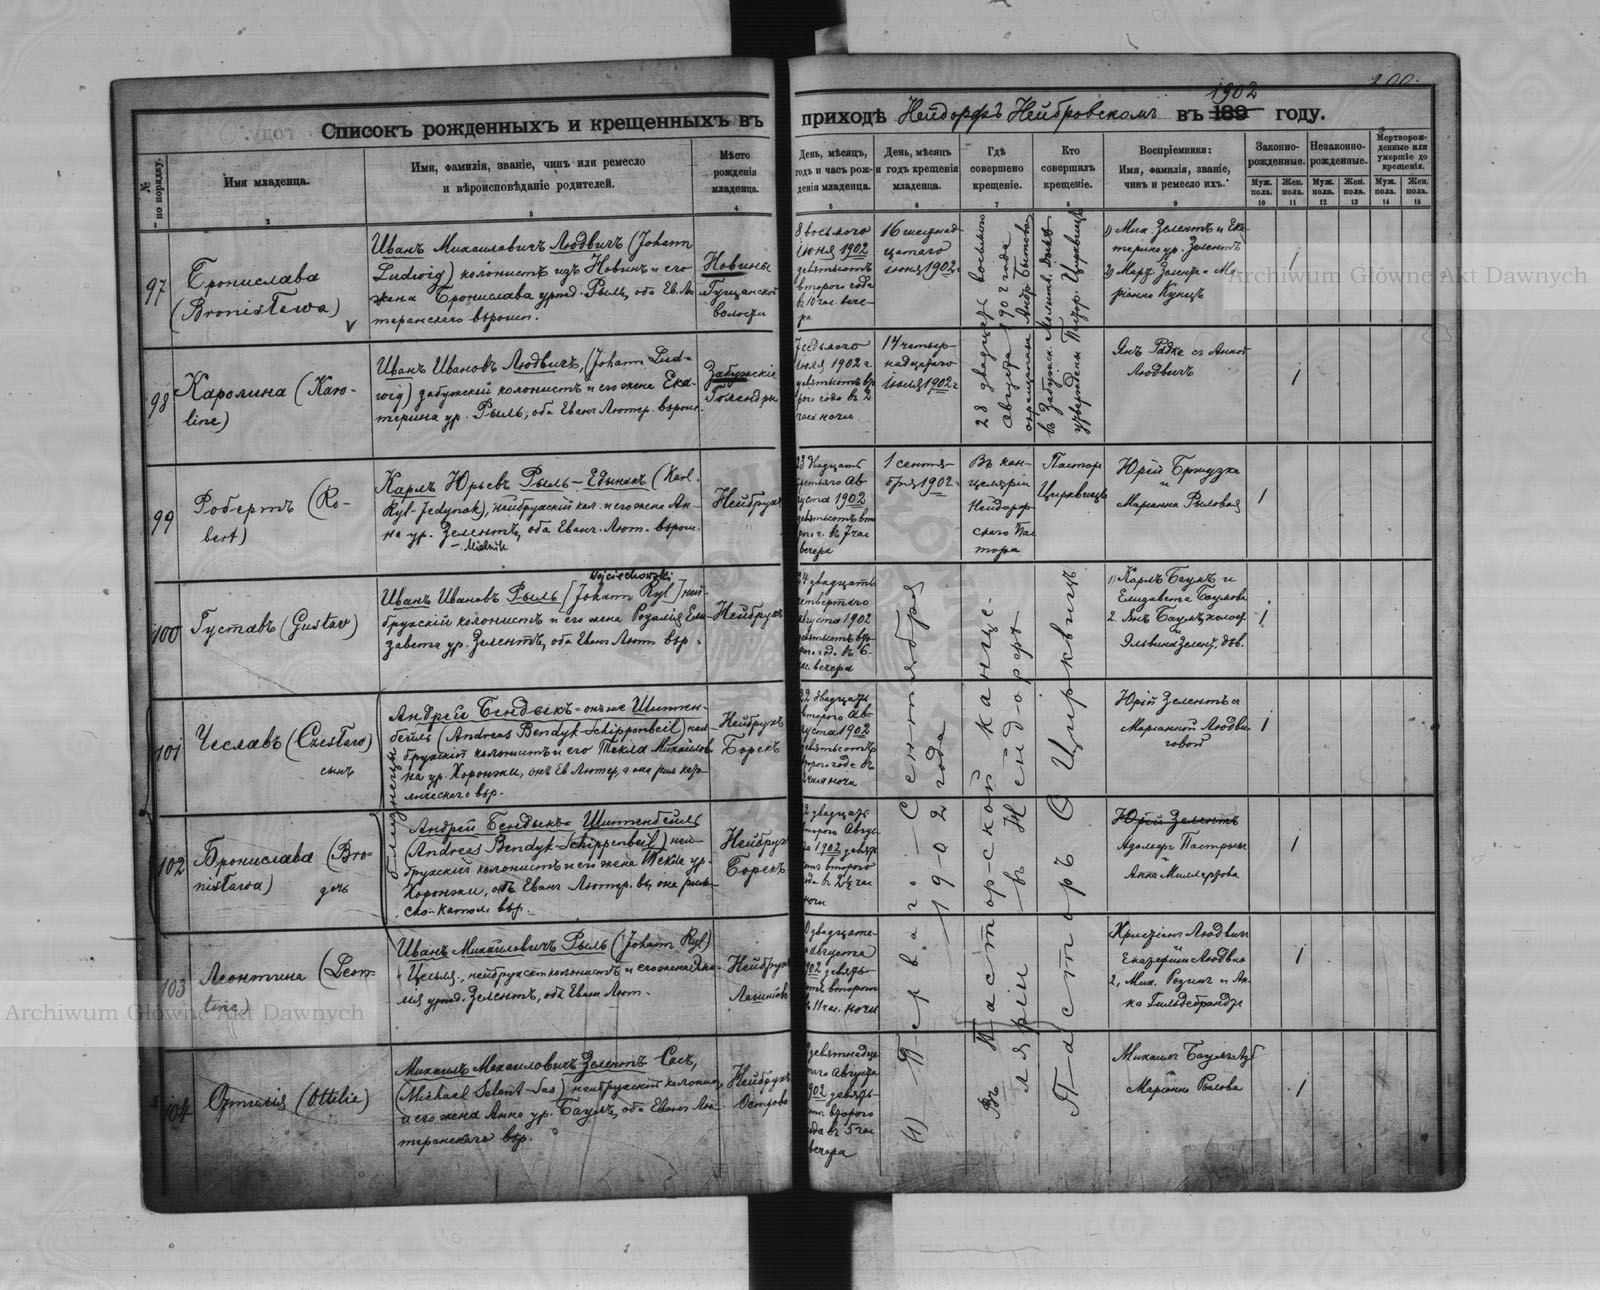 200.
Списокъ рожденныхъ и крещенныхъ въ приходѣ Нейдорфъ Нейбровскомъ въ 189 1902 году.
№ по порядку.
Имя младенца.
Имя, фамилія, званіе, чинъ или ремесло
и вѣроисповѣданіе родителей.
Мѣсто
рожденія
младенца.
День, мѣсяцъ,
годъ и часъ рож-
денія младенца.
День, мѣсяцъ
и годъ крещенія
младенца.
Гдѣ
совершено
крещеніе.
Кто
совершилъ
крещеніе.
Воспріемники:
Имя, фамилія, званіе,
чинъ и ремесло ихъ.
Законно-
рожденные.
Незаконно-
рожденные.
Мертворож-
денные или
умершіе до
крещенія.
Муж. пола. Жен. пола. Муж. пола. Жен. пола. Муж. пола. Жен. пола.
1 2 3 4 5 6 7 8 9 10 11 12 13 14 15
97
Бронислава
(Bronisława)
Иванъ Михаиловичъ Людвигъ (Johann
Ludwig) колонистъ изъ Новинъ и его
жена Бронислава урожд. Рыль, оба Ев. Лю-
теранскаго вѣроисп.
Новины
Гущанской
волости
8 восьмого
іюня 1902
девятьсотъ
второго года
въ 10 час. вече-
ра
16 шестнад-
цатаго
іюня 1902 г.
1) Мих. Зелентъ и Ека-
терина ур. Зелентъ
2) Март. Зелентъ и Ма-
ріанна Кунцъ
1
98
Каролина (Karo-
line)
Иванъ Ивановъ Людвигъ, (Johann Lud-
wig) забужскій колонистъ и его жена Ека-
терина ур. Рыль, оба Еванг. Лютер. вѣроисп.
Забужскіе
Голендры
7 седьмого
іюля 1902 г.
девятьсотъ вто-
рого года въ 2
часа ночи
14 четыр-
надцатаго
іюля 1902 г.
28 двадцать восьмого
Августа 1902 года
Янъ Радке съ Анной
Людвигъ
1
99
Робертъ (Ro-
bert)
Карлъ Юрьевъ Рыль-Едынакъ (Karl
Ryl-Jedynak), нейбрухскій кол. и его жена Ан-
на ур. Зелентъ, оба Еванг. Лют. вѣроисп.
- Mielnik
Нейбрухъ
23 двадцать
третьяго Ав-
густа 1902
девятьсотъ вто-
рого г. въ 7 час
вечера
1 сентя-
бря 1902 г.
Въ кан-
целяріи
Нейдорф-
скаго Пас-
тора
Пасторъ
Цирквицъ
Юрій Бржузка
и
Маріанна Рылова
1
100
Густавъ (Gustav)
Wojciechowski
Иванъ Ивановъ Рыль (Johann Ryl) ней-
брухскій колонистъ и его жена Розалія Ели-
завета ур. Зелентъ, оба Еванг. Лют. вѣр.
Нейбрухъ
24 двадцать
четвертаго
августа 1902
девятьсотъ вто-
рого год. въ 6
час. вечера
1) Карлъ Баумъ и
Елизавета Баумова
2. Янъ Баумъ холост.
и
Эльвина Зелентъ, дѣв.
1
101
Чеславъ (Czesław)
сынъ
близнецы
Андрей Бендыкъ - онъ же Шиппен-
бейль (Andreas Bendyk-Schippenbeil) ней-
брухскій колонистъ и его Текля Михайлов-
на ур. Хоронжи, онъ Ев. Лютер, а она рим. като-
лическаго вѣр.
Нейбрухъ
Борекъ
22 двадцать
второго Ав-
густа 1902
девятьсотъ
второго года въ
2 часа ночи
Юрій Зелентъ и
Маріанной Людви-
говой
1
102
Бронислава (Bro-
nisława)
дочь
Андрей Бендыкъ Шиппенбейль
(Andreas Bendyk-Schippenbeil) ней-
брухскій колонистъ и его жена Текля ур.
Хоронжи, онъ Еванг. Лютер. в., она рим-
ско-катол. вѣр.
Нейбрухъ
Борекъ
22 двадцать
второго Авгус-
та 1902 девять-
сотъ второго
года въ 2½ час
ночи
Юрій Зелентъ
Адольфъ Пастрый
и
Анна Миллерова
1
103
Леонтина (Leon-
tine)
Иванъ Михайловичъ Рыль (Johann Ryl)
нейбрухскій колонистъ и его жена
урожд. Зелентъ, оба Еванг. Лют.
Нейбрухъ
двадцата-
го августа
1902 девять-
сотъ второго
въ 11 час. ночи
Христіанъ Людвигъ
и
Екатерина Людвигъ
2, Мих. Розинъ и Ан-
на Гильдебрандъ
1
(1) Перваго Сентября
1902 года
Въ Пасторской канце-
ляріи въ Нейдорфѣ
Пасторъ О Цирквицъ
104
Оттилія (Ottilie)
Михаилъ Михаиловичъ Зелентъ Сасъ,
(Michael Selent-Sas) нейбрухскій колонистъ,
и его жена Анна ур. Баумъ, оба Еванг. Лю-
теранскаго вѣр.
Нейбрухъ
Острово
девятнадца-
таго Августа
1902 девять-
сотъ второго
года въ 5 час
вечера
Михаилъ Баумъ
и
Маріанна Рылова
1
Archiwum Główne Akt Dawnych
Archiwum Główne Akt Dawnych